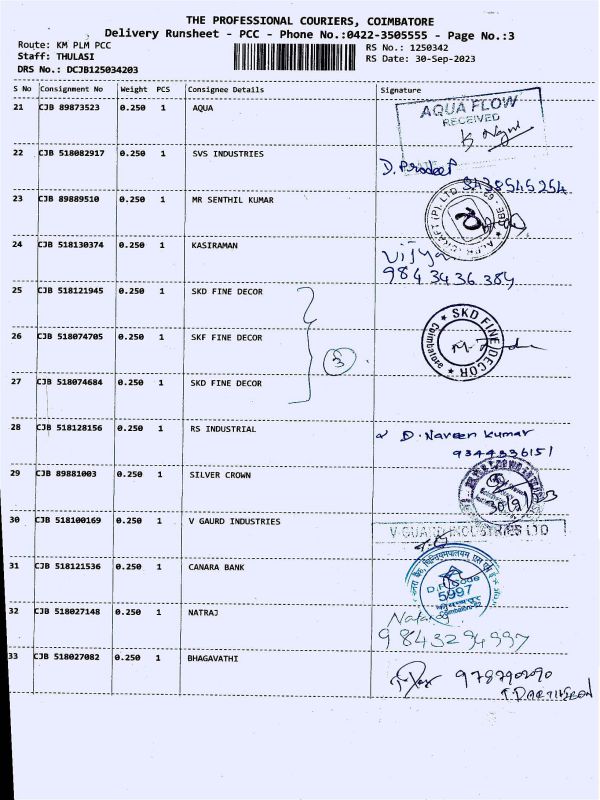 THE PROFESSIONAL COURIERS, COIMBATORE
Delivery Runsheet - PCC - Phone No.:0422-3505555 - Page No.:3
Route: KM PLM PCC
RS No.: 1250342
Staff: THULASI
RS Date: 30-Sep-2023
DRS No.: DCJB125034203
S No Consignment No Weight PCS Consignee Details Signature
21 CJB 89873523 0.250 1 AQUA
AQUA FLOW
RECEIVED
22 CJB 518082917 0.250 1 SVS INDUSTRIES
D. Pradeep
9438545254
23 CJB 89889510 0.250 1 MR SENTHIL KUMAR
24 CJB 518130374 0.250 1 KASIRAMAN
Vijya
9843436384
25 CJB 518121945 0.250 1 SKD FINE DECOR
26 CJB 518074705 0.250 1 SKF FINE DECOR
3
SKD FINE DECOR
Coimbatore
27 CJB 518074684 0.250 1 SKD FINE DECOR
28 CJB 518128156 0.250 1 RS INDUSTRIAL
D. Naveen Kumar
9344336151
29 CJB 89881003 0.250 1 SILVER CROWN
30/9/
30 CJB 518100169 0.250 1 V GAURD INDUSTRIES
V GUARD INDUSTRIES LTD
31 CJB 518121536 0.250 1 CANARA BANK
Code
5997
32 CJB 518027148 0.250 1 NATRAJ
Nataraj
9843294997
33 CJB 518027082 0.250 1 BHAGAVATHI